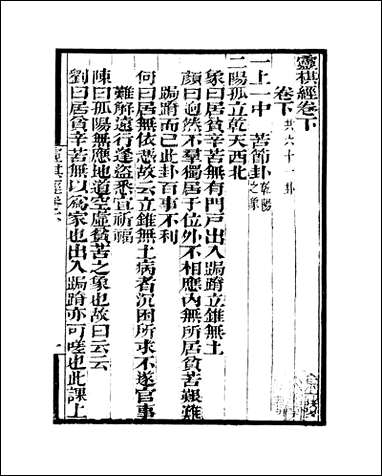 靈棋經卷下
卷下 共六十一卦
一上一中 苦節卦 乾陽之象
二陽孤立乾天西北
象曰居貧辛苦無有門戶出入跼蹐立錐無土
顏曰逈然不羣獨居于位外不相應內無所居貧苦艱難
跼蹐而已此卦百事不利
何曰居無依憑故云立錐無土病者沉困所求不遂官事
難解遠行逢盜悉宜祈福
陳曰孤陽無應地道空虛貧苦之象也故曰云云
劉曰居貧辛苦無以爲家也出入跼蹐亦可嗟也此課上
靈棋經卷下
一